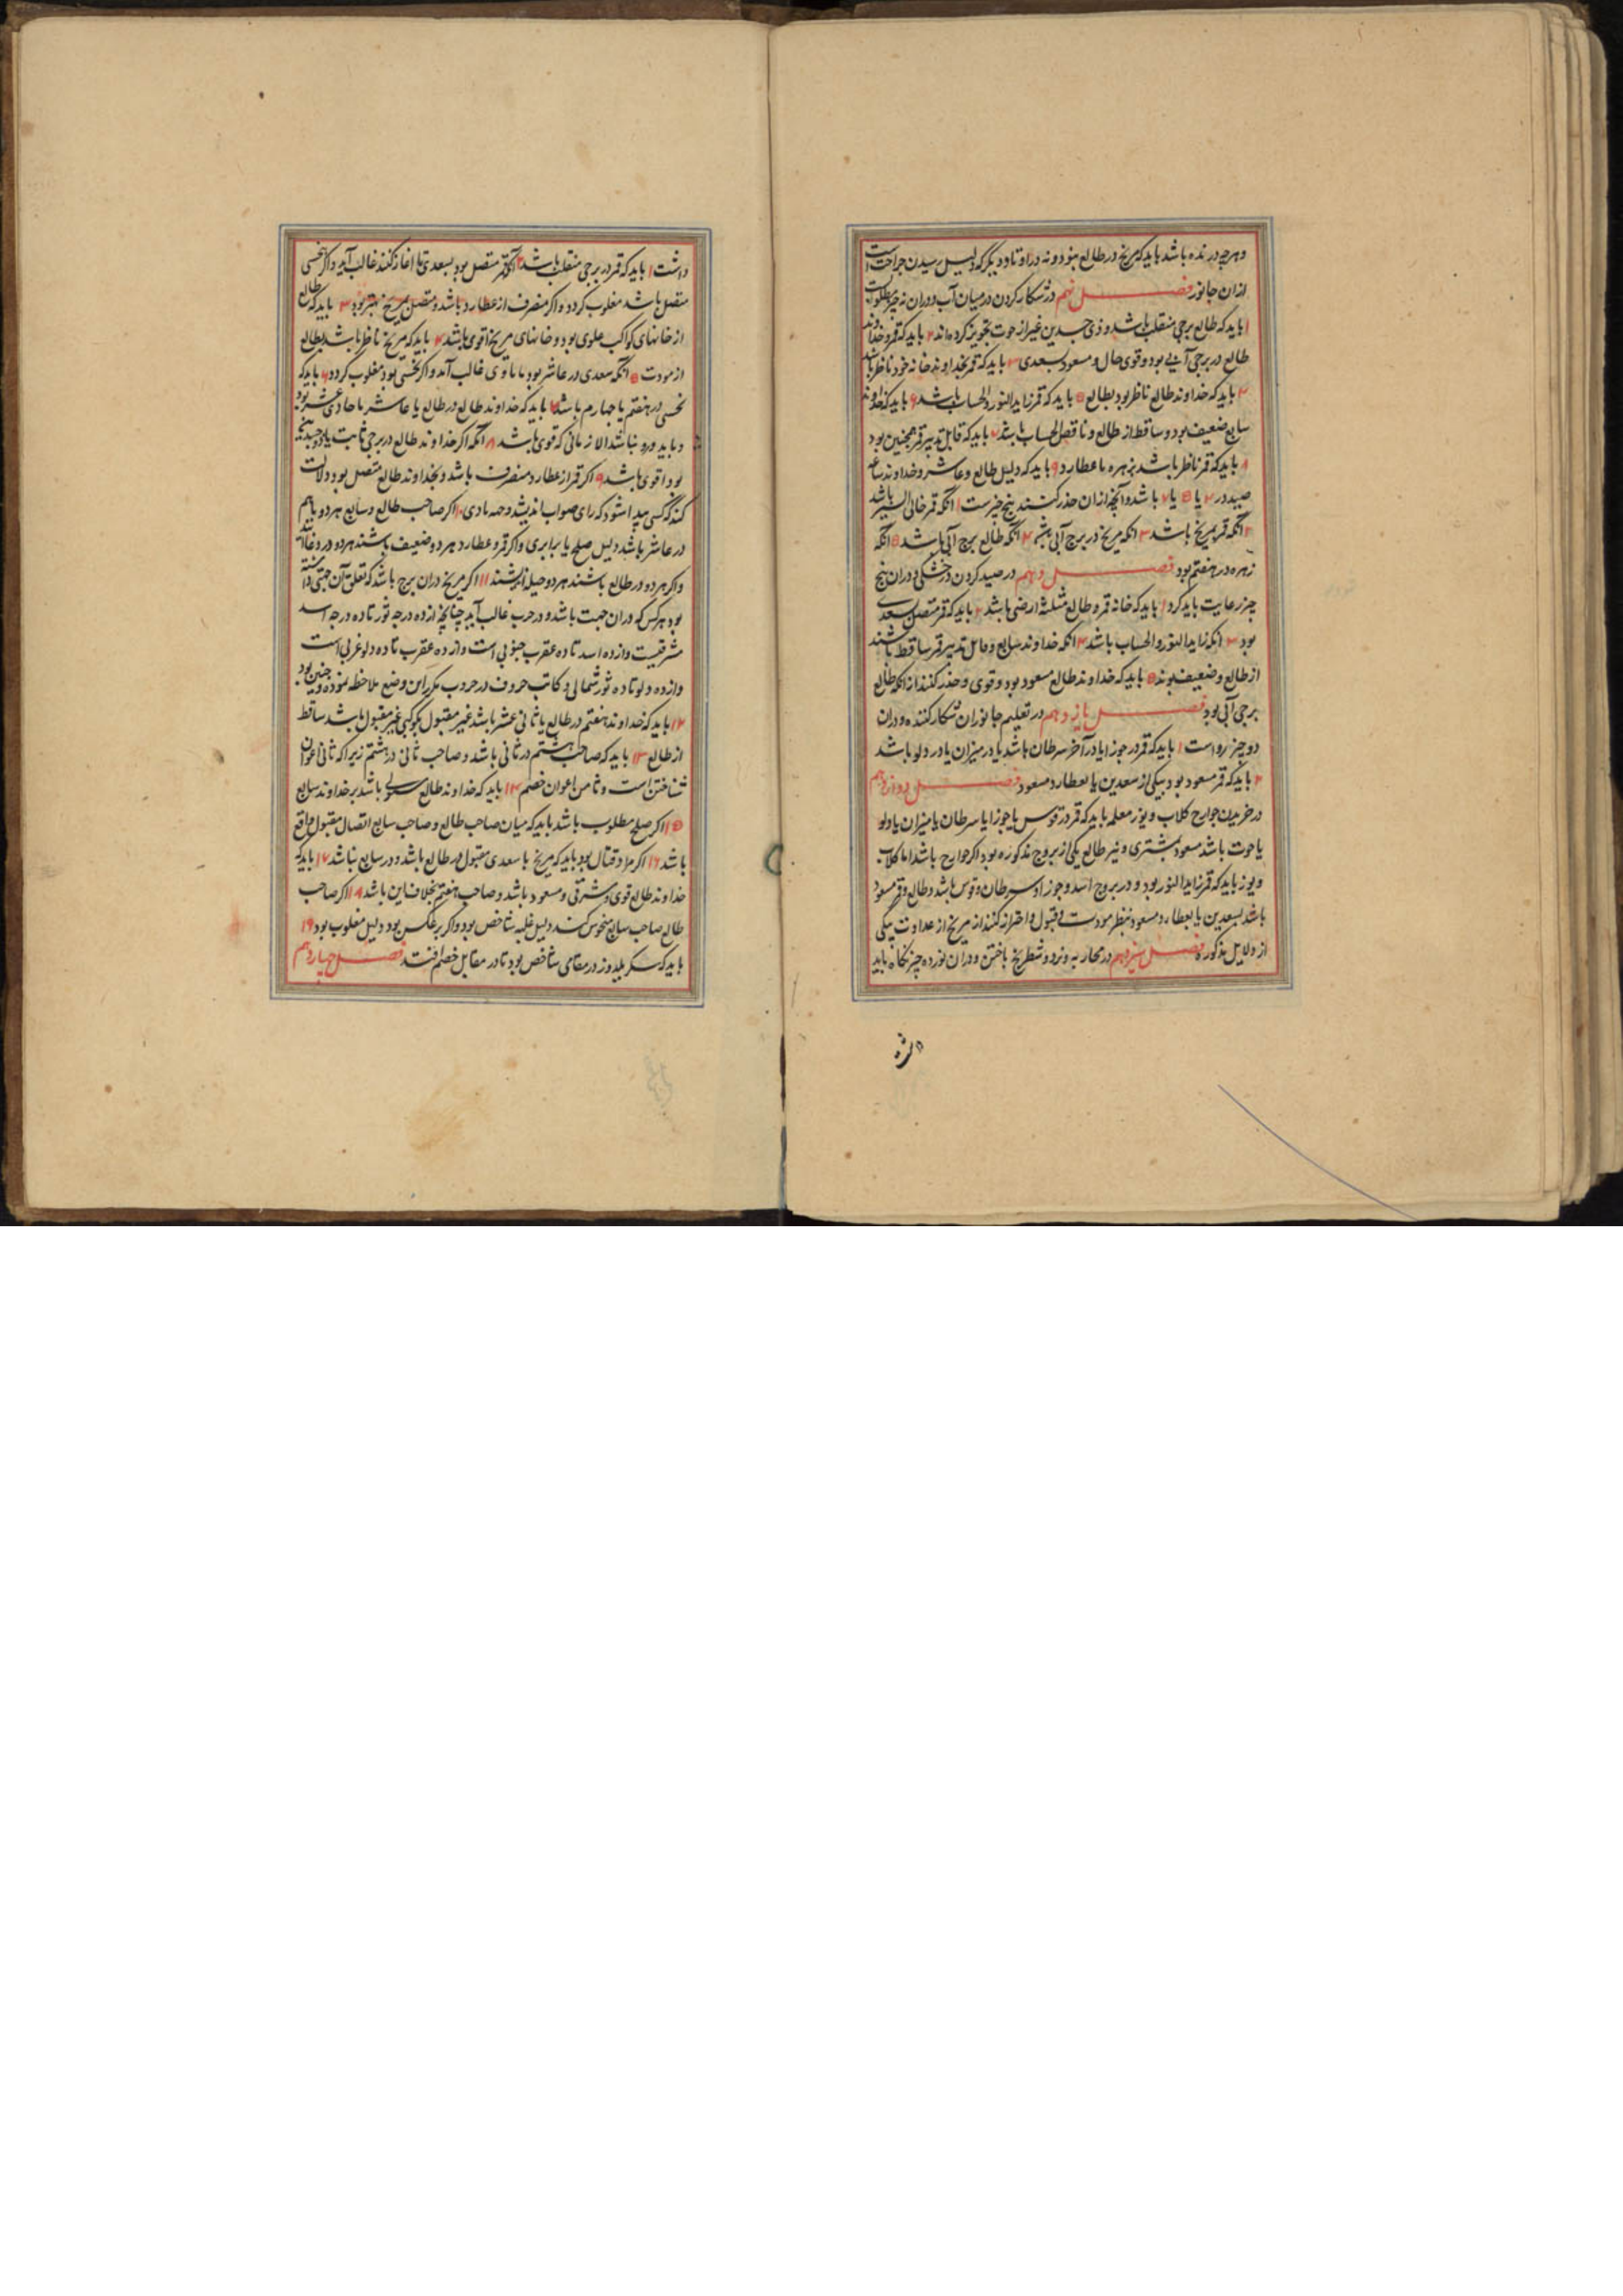 وهرچه درنده باشد باید که مریخ در طالع نبود و نه در اوتاد دیگر که دلیل رسیدن جراحت است
ازان جانور فصل نهم در شکار کردن در میان آب و دران نه چیز مطلوبست
۱ باید که طالع برجی منقلب باشد و ذی جسدین غیر از حوت تجویز کرده اند ۲ باید که قمر و خداوند
طالع در برجی آبی بود و قوی حال و مسعود بسعدی ۳ باید که قمر بخداوند خانه خود ناظر باشد
۴ باید که خداوند طالع ناظر بود بطالع ۵ باید که قمر زاید النور و الحساب باشد ۶ باید که خداوند
سابع ضعیف بود و ساقط از طالع و ناقص الحساب باشد ۷ باید که قابل تدبیر قمر همچنین بود
۸ باید که قمر ناظر باشد بزهره یا عطارد ۹ باید که دلیل طالع و عاشر و خداوند ساعه
صید در ۴ یا ۵ یا ۷ باشد و آنچه ازان حذر کنند پنج چیز است ۱ انکه قمر خالی السیر باشد
۲ انکه قمر بمریخ باشد ۳ انکه مریخ در برج آبی باشد ۴ انکه طالع برج آبی باشد ۵ انکه
زهره در هفتم بود فصل دهم در صید کردن در خشکی و دران پنج
چیز رعایت باید کرد ۱ باید که خانه قمر و طالع مثلثه ارضی باشد ۲ باید که قمر متصل بسعدی
بود ۳ انکه زاید النور و الحساب باشد ۴ انکه خداوند سابع و قابل تدبیر قمر ساقط باشند
از طالع و ضعیف بوند ۵ باید که خداوند طالع مسعود بود و قوی و حذر کنند از انکه طالع
برجی آبی بود فصل یازدهم در تعلیم جانوران شکار کننده و دران
دو چیز رواست ۱ باید که قمر در جوزا یا در آخر سرطان باشد یا در میزان یا در دلو باشد
۲ باید که قمر مسعود بود بیکی از سعدین یا بعطارد مسعود فصل دوازدهم
در خریدن جوارح کلاب و یوز معلم باید که قمر در قوس یا جوزا یا سرطان یا میزان یا دلو
یا حوت باشد مسعود بمشتری و نیر طالع یکی از بروج مذکوره بود اگر جوارح باشد اما کلاب
و یوز باید که قمر زاید النور بود و در بروج اسد و جوزا و سرطان و قوس باشد و طالع و قمر مسعود
باشد بسعدین یا بعطارد مسعود بنظر مودت و قبول و احتراز کنند از مریخ از عداوت بیکی
از دلایل مذکوره فصل سیزدهم در محاربه و نرد و شطرنج باختن و دران نوزده چیز نگاه باید
داشت
داشت ۱ باید که قمر در برجی منقلب باشد ۲ انکه قمر متصل بود بسعدی تا اغاز کنند غالب آید و اگر بنحسی
متصل باشد مغلوب گردد و اگر منصرف از عطارد باشد و متصل بمریخ بهتر بود ۳ باید که طالع
از خانهای کواکب علوی بود و خانهای مریخ اقوی باشد ۴ باید که مریخ ناظر باشد بطالع
از مودت ۵ انکه سعدی در عاشر بود تا وی غالب آید و اگر نحسی بود مغلوب گردد ۶ باید که
نحسی در هفتم یا چهارم باشد ۷ باید که خداوند طالع در طالع یا عاشر یا حادی عشر بود
و باید نباشد الا زمانی که قوی باشد ۸ انکه اگر خداوند طالع در برجی ثابت یا ذوجسدین
بود اقوی باشد ۹ اگر قمر از عطارد منصرف باشد و بخداوند طالع متصل بود دلالت
کند که کسی پیدا شود که رای صواب اندیشد ۱۰ اگر صاحب طالع و سابع هر دو باهم
در عاشر باشد دلیل صلح یا برابری و اگر قمر و عطارد هر دو ضعیف باشند هر دو
و اگر هر دو در طالع باشند هر دو حیله اندیشند ۱۱ اگر مریخ دران برج باشد که تعلق آن جهتی داشته
بود هر کس که دران جهت باشد و در حرب غالب آید چنانچه از ده درجه ثور تا ده درجه اسد
مشرقیست و از ده اسد تا ده عقرب جنوبی است و از ده عقرب تا ده دلو غربی است
و از ده دلو تا ده ثور شمالی و کاتب حروف در حروب مکرر این وضع ملاحظه نموده و چنین بود
۱۲ باید که خداوند هفتم در طالع یا ثانی عشر باشد غیر مقبول بکوکبی غیر مقبول باشد ساقط
از طالع ۱۳ باید که صاحب هشتم در ثانی باشد و صاحب ثانی در هشتم زیرا که ثانی اعوان
شاخص است و ثامن اعوان خصم ۱۴ باید که خداوند طالع مستولی باشد بر خداوند سابع
۱۵ اگر صلح مطلوب باشد باید که میان صاحب طالع و صاحب سابع اتصال مقبول واقع
باشد ۱۶ اگر مراد قتال بود باید که مریخ با سعدی مقبول در طالع باشد و در سابع نباشد ۱۷ باید که
خداوند طالع قوی و مشرقی و مسعود باشد و صاحب هفتم بخلاف این باشد ۱۸ اگر صاحب
طالع صاحب سابع منحوس کند دلیل غلبه شاخص بود و اگر برعکس بود دلیل مغلوب بود ۱۹
باید که سکر یلدوز در مقامی شاخص بود تا در مقابل خصم افتد فصل چهاردهم